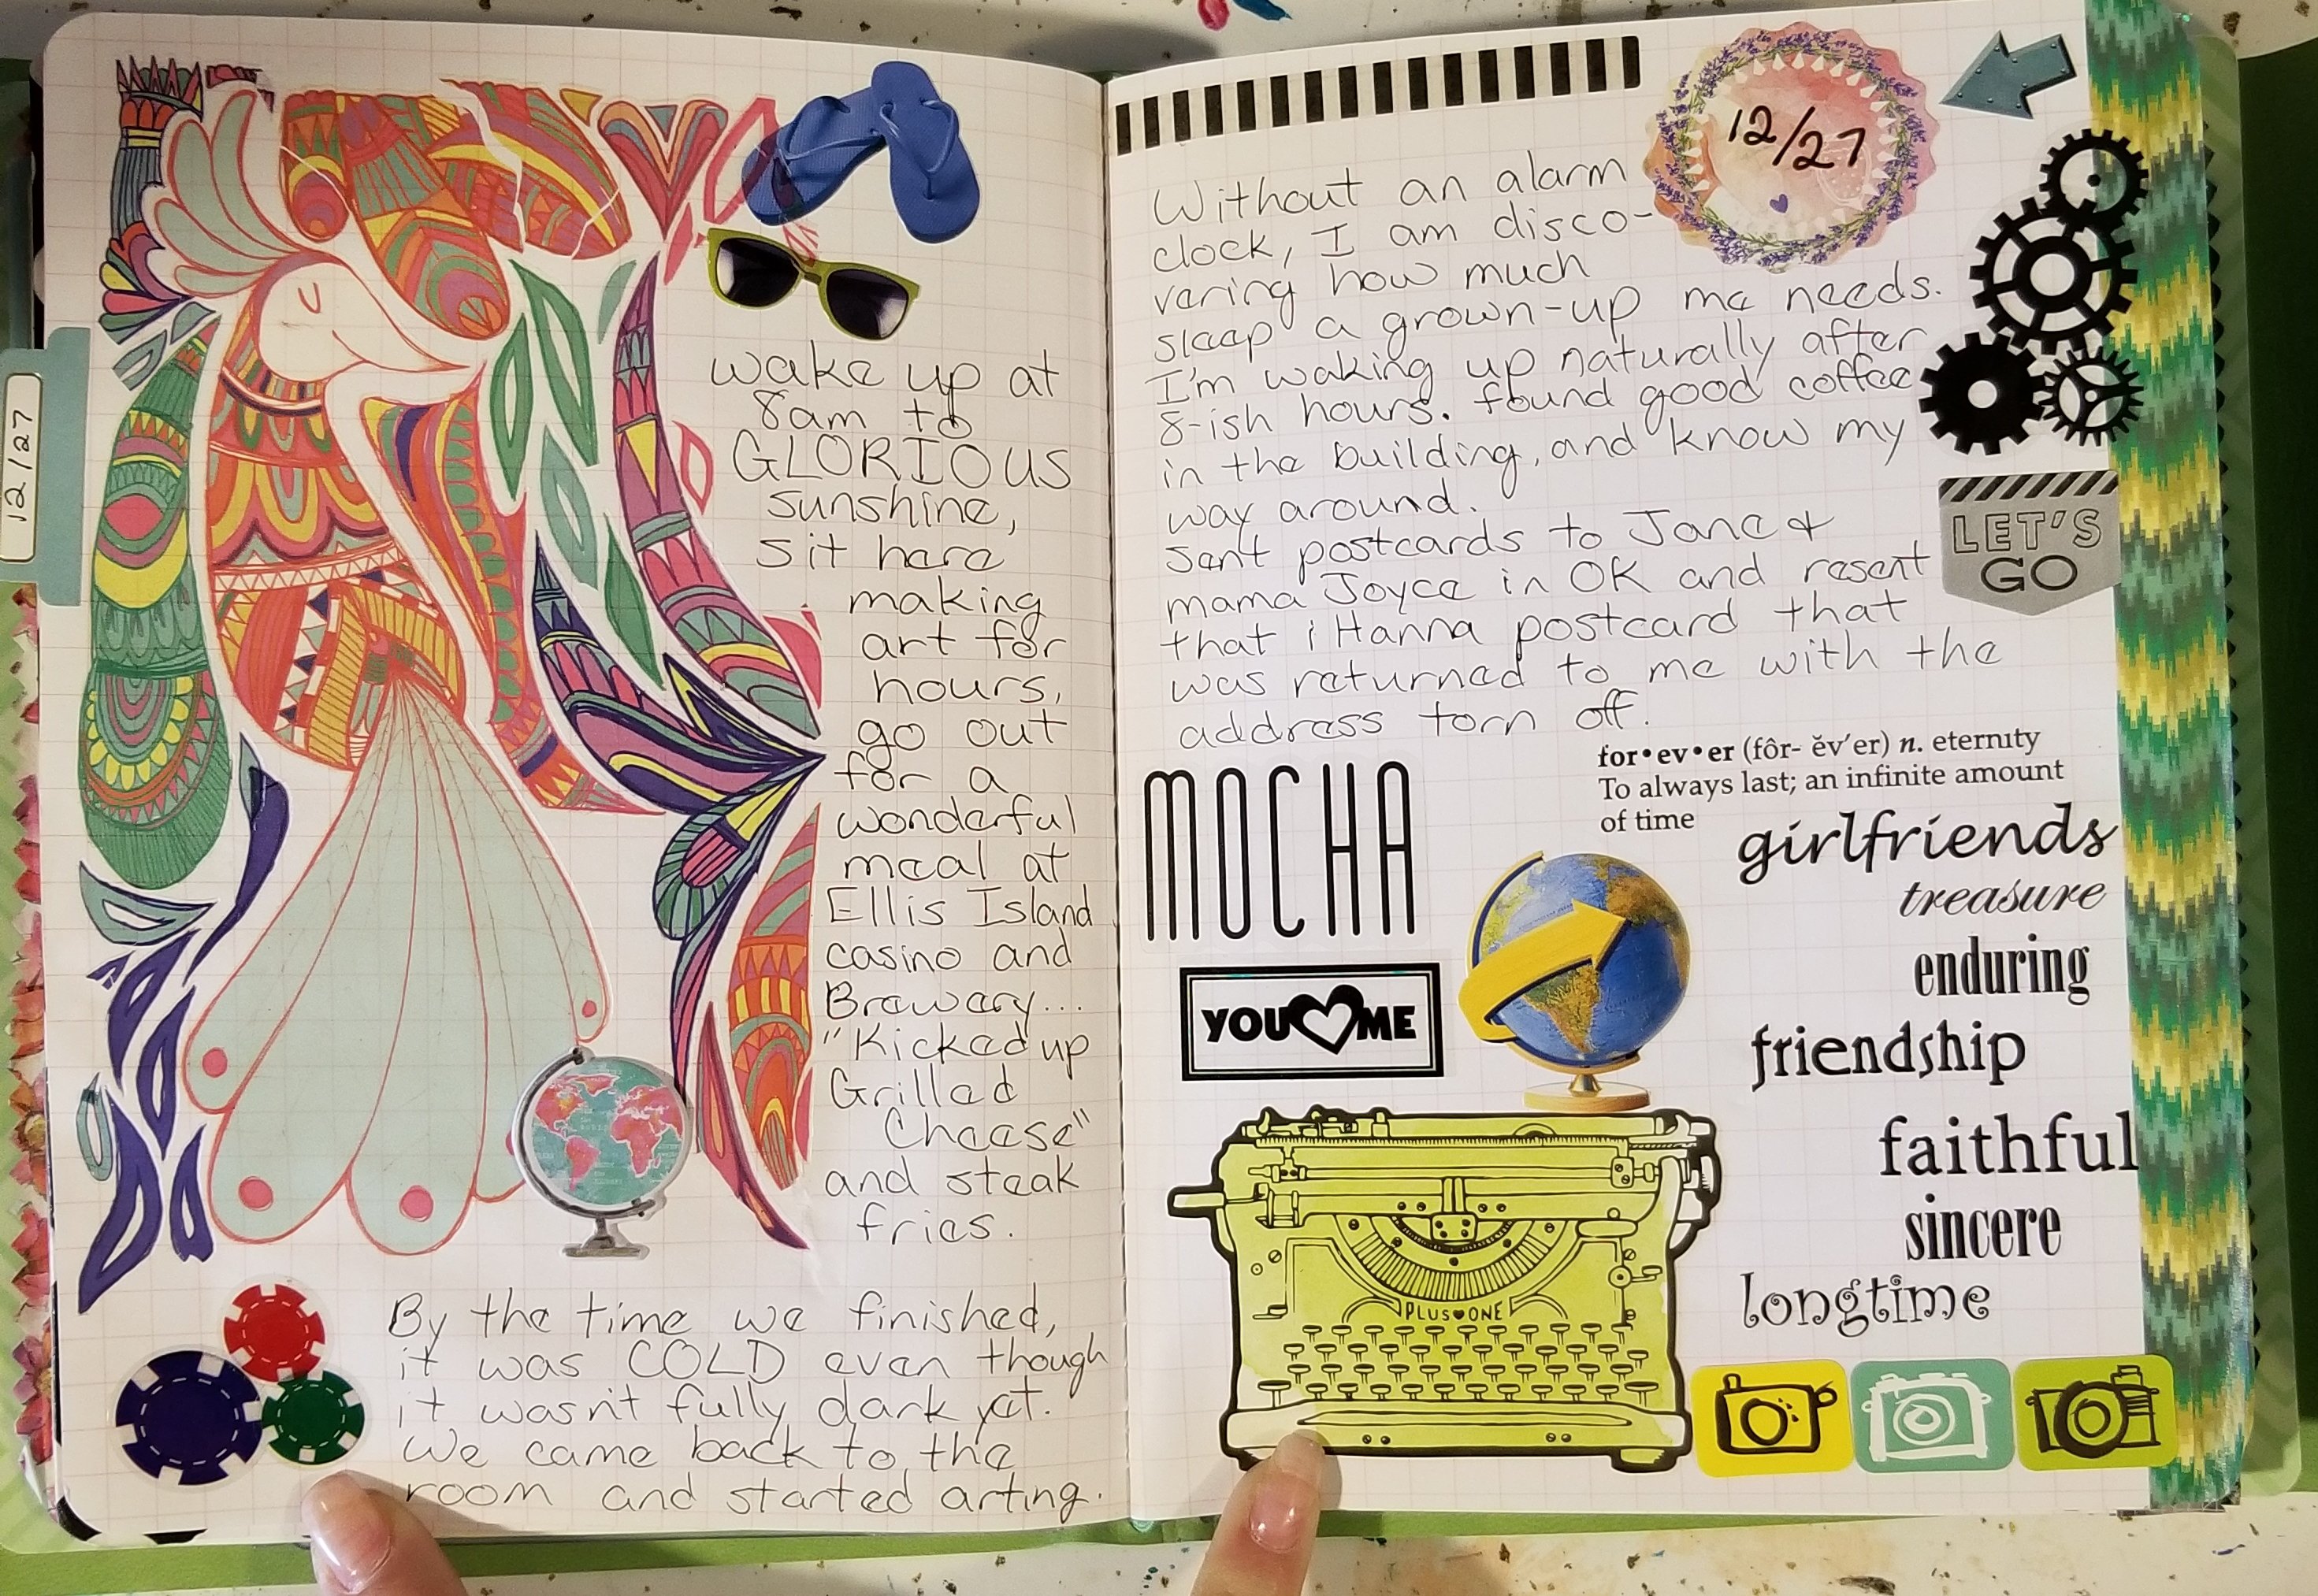 12/27
wake up at
8am to
GLORIOUS
sunshine,
sit here
making
art for
hours,
go out
for a
wonderful
meal at
Ellis Island
casino and
Brewery...
"Kicked up
Grilled
Cheese"
and steak
fries.
By the time we finished,
it was COLD even though
it wasn't fully dark yet.
We came back to the
room and started arting.
12/27
Without an alarm
clock, I am disco-
vering how much
sleep a grown-up me needs.
I'm waking up naturally after
8-ish hours. found good coffee
in the building, and know my
way around.
Sent postcards to Jane &
mama Joyce in OK and resent
that iHanna postcard that
was returned to me with the
address torn off.
LET'S
GO
for•ev•er (fôr- ĕv'er) n. eternity
To always last; an infinite amount
of time
MOCHA
girlfriends
treasure
enduring
YOU ME
friendship
faithful
sincere
longtime
PLUS ONE